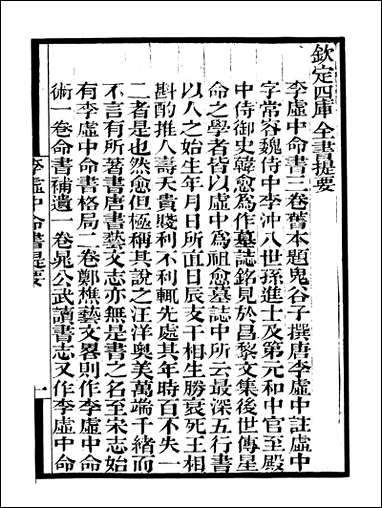 欽定四庫全書提要
李虛中命書三卷舊本題鬼谷子撰唐李虛中註虛中
字常容魏侍中李沖八世孫進士及第元和中官至殿
中侍御史韓愈爲作墓誌銘見於昌黎文集後世傳星
命之學者皆以虛中爲祖愈墓誌中所云最深五行書
以人之始生年月日所直日辰支干相生勝衰死王相
斟酌推人壽夭貴賤利不利輒先處其年時百不失一
二者是也然愈但極稱其說之汪洋奧美萬端千緒而
不言有所著書唐書藝文志亦無是書之名至宋志始
有李虛中命書格局二卷鄭樵藝文畧則作李虛中命
術一卷命書補遺一卷晁公武讀書志又作李虛中命
李虛中命書提要
一